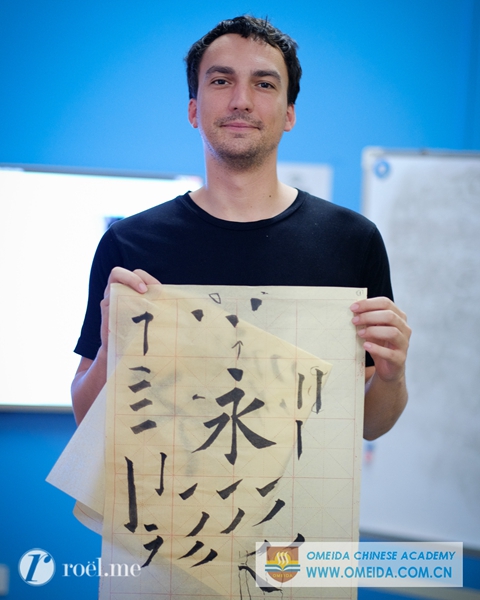 永
roël.me
OMEIDA CHINESE ACADEMY
WWW.OMEIDA.COM.CN